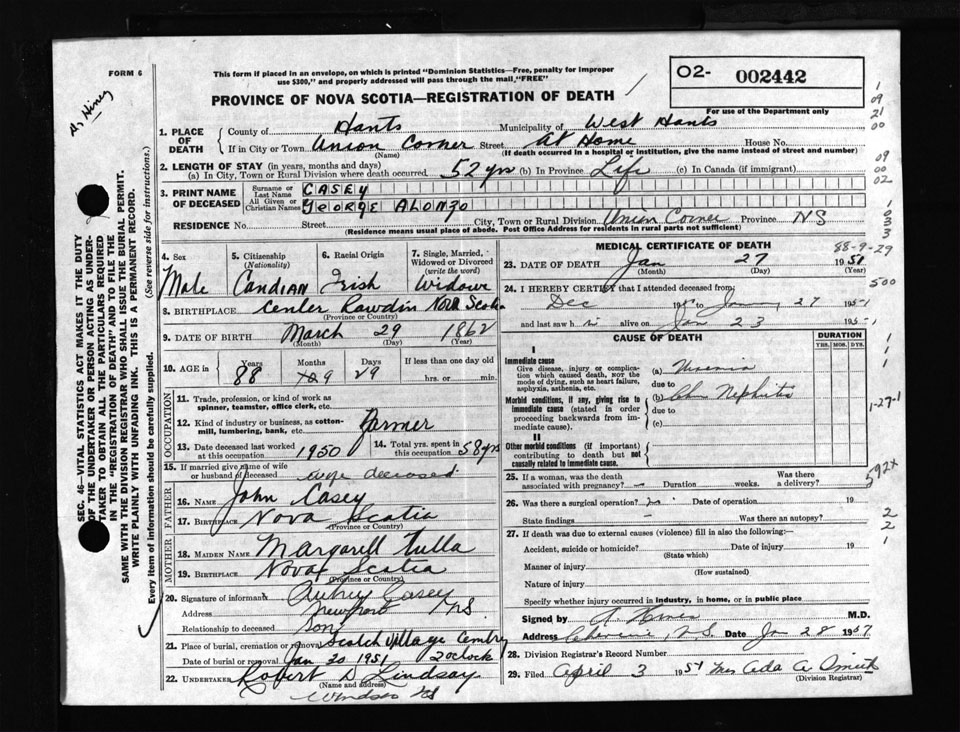 FORM 6
This form if placed in an envelope, on which is printed "Dominion Statistics—Free, penalty for improper
use $300," and properly addressed will pass through the mail, "FREE"
PROVINCE OF NOVA SCOTIA—REGISTRATION OF DEATH
O2- 002442
For use of the Department only
1. PLACE OF DEATH
County of Hants Municipality of West Hants
If in City or Town Union Corner Street At Home House No.
(Name) (If death occurred in a hospital or institution, give the name instead of street and number)
2. LENGTH OF STAY (in years, months and days)
(a) In City, Town or Rural Division where death occurred 52 yrs (b) In Province Life (c) In Canada (if immigrant)
3. PRINT NAME OF DECEASED
Surname or Last Name CASEY
All Given or Christian Names GEORGE ALONZO
RESIDENCE No. Street City, Town or Rural Division Union Corner Province NS
(Residence means usual place of abode. Post Office Address for residents in rural parts not sufficient)
4. Sex
Male
5. Citizenship
(Nationality)
Candian
6. Racial Origin
Irish
7. Single, Married, Widowed or Divorced
(write the word)
Widowe
8. BIRTHPLACE Center Rawdin Nova Scotia
(Province or Country)
9. DATE OF BIRTH March 29 1862
(Month) (Day) (Year)
10. AGE in Years Months Days If less than one day old
88 9 29 hrs. or min.
OCCUPATION
11. Trade, profession, or kind of work as
spinner, teamster, office clerk, etc.
12. Kind of industry or business, as cotton-
mill, lumbering, bank, etc. Farmer
13. Date deceased last worked
at this occupation 1950
14. Total yrs. spent in
this occupation 58 yrs
15. If married give name of wife
or husband of deceased wife deceased
FATHER
16. NAME John Casey
17. BIRTHPLACE Nova Scotia
(Province or Country)
MOTHER
18. MAIDEN NAME Margarell Tulla
19. BIRTHPLACE Nova Scotia
(Province or Country)
20. Signature of informant Aubrey Casey
Address Newport NS
Relationship to deceased son
21. Place of burial, cremation or removal Scotch Village Cemtry
Date of burial or removal Jan 30 1951 2 oclock
22. UNDERTAKER Robert D Lindsay
(Name and address)
Windsor NS
MEDICAL CERTIFICATE OF DEATH
88-9-29
23. DATE OF DEATH Jan 27 1951
(Month) (Day) (Year)
24. I HEREBY CERTIFY that I attended deceased from
Dec 195 to Jan 27 1951
and last saw h im alive on Jan 23 1951
CAUSE OF DEATH
DURATION
YRS. MOS. DYS.
I
Immediate cause
Give disease, injury or complica-
tion which caused death, NOT the
mode of dying, such as heart failure,
asphyxia, asthenia, etc.
(a) Uremia
due to
Morbid conditions, if any, giving rise to
immediate cause (stated in order
proceeding backwards from im-
mediate cause).
(b) Chr Nephritis
due to
(c)
II
Other morbid conditions (if important)
contributing to death but not
causally related to immediate cause.
25. If a woman, was the death
associated with pregnancy? — Duration weeks. Was there
a delivery?
26. Was there a surgical operation? no Date of operation 19
State findings Was there an autopsy?
27. If death was due to external causes (violence) fill in also the following:—
Accident, suicide or homicide? Date of injury 19
(State which)
Manner of injury
(How sustained)
Nature of injury
Specify whether injury occurred in industry, in home, or in public place
Signed by M.D.
Address N.S. Date Jan 28 195
28. Division Registrar's Record Number
29. Filed April 3 1951 Mrs Ada A Smith
(Division Registrar)
SEC. 46—VITAL STATISTICS ACT MAKES IT THE DUTY
OF THE UNDERTAKER OR PERSON ACTING AS UNDER-
TAKER TO OBTAIN ALL THE PARTICULARS REQUIRED
IN THE "REGISTRATION OF DEATH" AND TO FILE THE
SAME WITH THE DIVISION REGISTRAR WHO SHALL ISSUE THE BURIAL PERMIT.
WRITE PLAINLY WITH UNFADING INK. THIS IS A PERMANENT RECORD.
Every item of information should be carefully supplied. (See reverse side for instructions.)
1
09
21
00
09
00
02
1
0
3
3
500
1
1
1
1-27-1
592x
2
2
1